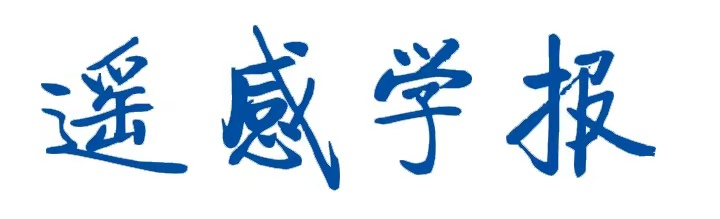 遥感学报